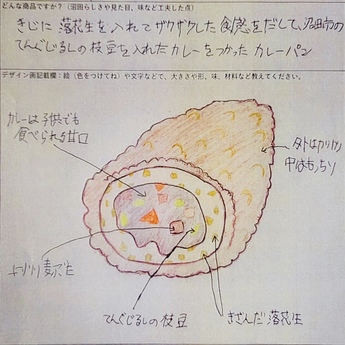 どんな商品ですか？（沼田らしさや見た目、味など工夫した点）
きじに落花生を入れてザクザクした食感をだして、沼田市の
てんぐじるしの枝豆を入れたカレーをつかったカレーパン
デザイン画記載欄：絵（色をつけてね）や文字などで、大きさや形、味、材料など教えてください。
カレーは子供でも
食べられる甘口
外はカリカリ
中はもっちり
てんぐじるしの枝豆
きざんだ落花生